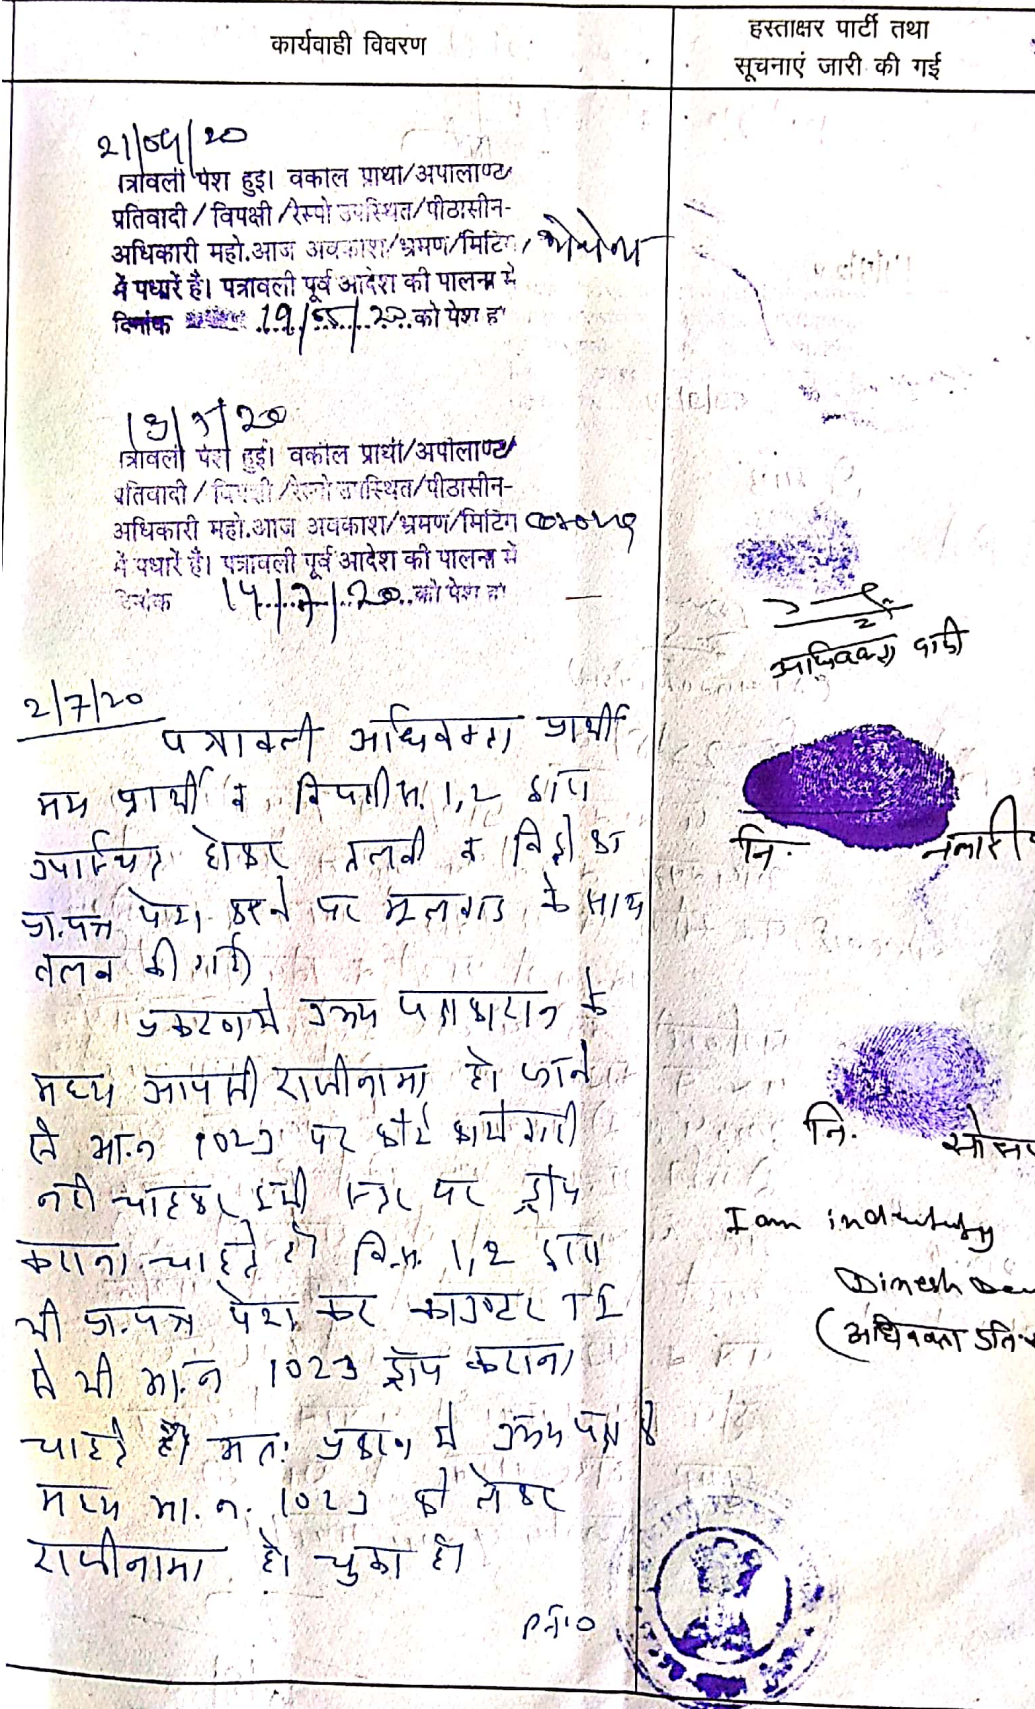 कार्यवाही विवरण
हस्ताक्षर पार्टी तथा
सूचनाएं जारी की गई
21/04/20
त्रावली पेश हुई। वकील प्रार्थी/अपीलाण्ट/
प्रतिवादी / विपक्षी /रेस्पो उपस्थित/पीठासीन-
अधिकारी महो.आज अवकाश/भ्रमण/मिटिंग/
में पधारें हैं। पत्रावली पूर्व आदेश की पालना में
दिनांक 19/5/20 को पेश हो
त्रावली पेश हुई। वकील प्रार्थी/अपीलाण्ट/
प्रतिवादी / विपक्षी /रेस्पो उपस्थित/पीठासीन-
अधिकारी महो.आज अवकाश/भ्रमण/मिटिंग
में पधारें हैं। पत्रावली पूर्व आदेश की पालना में
दिनांक 14/7/20 को पेश हो
अधिवक्ता वादी
2/7/20
पत्रावली अधिवक्ता प्रार्थी
मय प्रार्थी व विपक्षी सं. 1,2 द्वारा
उपस्थित होकर तलबी व विड्रो का
प्रा.पत्र पेश करने पर मूलवाद के साथ
तलब की गई
प्रकरण में उभय पक्षकारान के
मध्य आपसी राजीनामा हो जाने
से आ.न 1023 पर कोई कार्यवाही
नहीं चाहकर इसी स्तर पर ड्रॉप
कराना चाहते हैं वि.सं. 1,2 द्वारा
भी प्रा.पत्र पेश कर काउण्टर TI
से भी आ.न 1023 ड्रॉप कराना
चाहते हैं अतः प्रकरण में उभय पक्ष के
मध्य आ.न. 1023 को लेकर
राजीनामा हो चुका है।
नि.
नि.
I am indentify
Dinesh
(अधिवक्ता
P.T.O